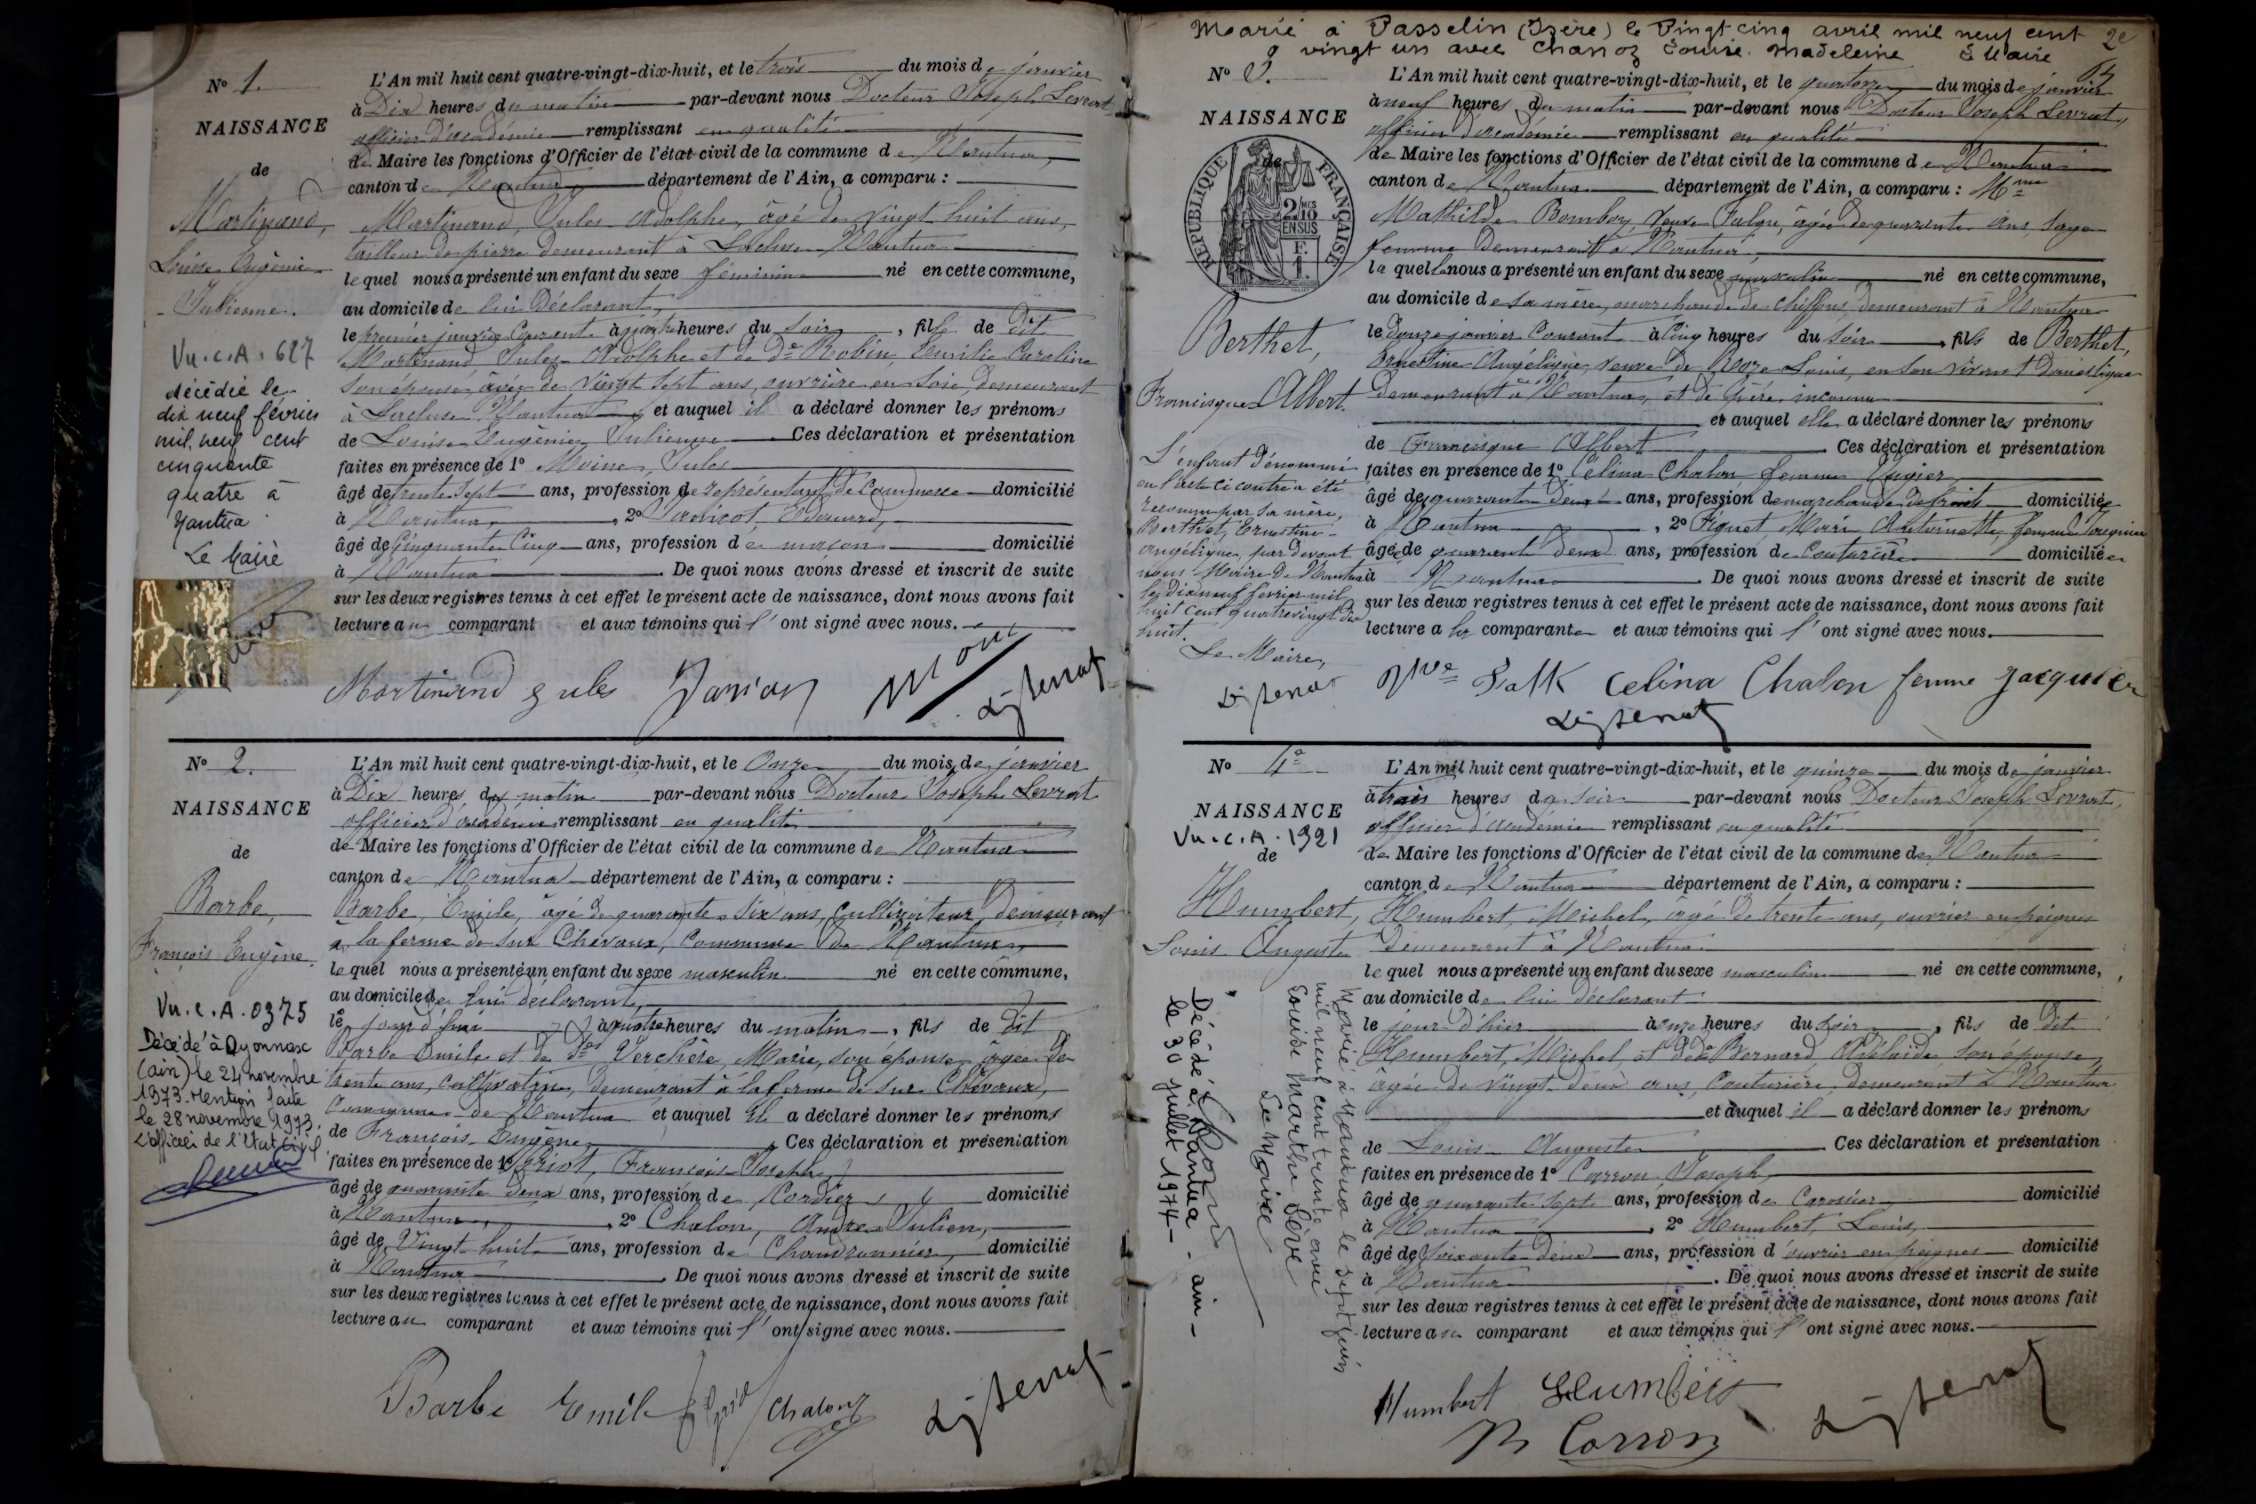 Nº 1.
NAISSANCE
de
Martinand,
Louise Eugénie
Julienne.
Vu.c.A. 627
décédée le
dix neuf février
mil neuf cent
cinquante
quatre à
Nantua
Le Maire
L'An mil huit cent quatre-vingt-dix-huit, et le trois du mois de janvier
à Dix heures du matin par-devant nous Docteur Joseph Levrat
officier d'académie remplissant en qualité
de Maire les fonctions d'Officier de l'état civil de la commune de Nantua,
canton de Nantua département de l'Ain, a comparu :
Martinand, Jules Adolphe, âgé de vingt huit ans,
tailleur de pierre demeurant à Lacluse Nantua
lequel nous a présenté un enfant du sexe féminin né en cette commune,
au domicile de lui Déclarant,
le premier janvier Courant à quatre heures du soir, fille de Dit
Martinand, Jules Adolphe et de de Robin, Emilie Caroline
son épouse, âgée de vingt sept ans, ouvrière en soie, demeurant
à Lacluse Nantua et auquel il a déclaré donner les prénoms
de Louise Eugénie Julienne Ces déclaration et présentation
faites en présence de 1º Moine, Jules
âgé de trente sept ans, profession de représentant de Commerce domicilié
à Nantua, 2º Edouard,
âgé de Cinquante Cinq ans, profession de maçon domicilié
à Nantua De quoi nous avons dressé et inscrit de suite
sur les deux registres tenus à cet effet le présent acte de naissance, dont nous avons fait
lecture au comparant et aux témoins qui l'ont signé avec nous.
Martinand Jules
Nº 2.
NAISSANCE
de
Barbe,
François Eugène.
Vu.c.A. 0375
Décédé à Oyonnax
(ain) le 24 novembre
1973. Mention faite
le 28 novembre 1973.
L'officier de l'Etat Civil
L'An mil huit cent quatre-vingt-dix-huit, et le Onze du mois de janvier
à Dix heures du matin par-devant nous Docteur Joseph Levrat
officier d'académie remplissant en qualité
de Maire les fonctions d'Officier de l'état civil de la commune de Nantua
canton de Nantua département de l'Ain, a comparu :
Barbe, Emile, âgé de quarante six ans, Cultivateur, Demeurant
à la ferme de sur Chevaux, Commune de Nantua,
lequel nous a présenté un enfant du sexe masculin né en cette commune,
au domicile de lui déclarant,
le jour d'hui à quatre heures du matin, fils de Dit
Barbe Emile et de de Verchère, Marie, son épouse, âgée de
trente ans, cultivatrice, demeurant à la ferme de sur Chevaux,
Commune de Nantua et auquel il a déclaré donner les prénoms
de François Eugène Ces déclaration et présentation
faites en présence de 1º François Joseph,
âgé de quarante deux ans, profession de Cordier domicilié
à Nantua, 2º Chalon, André Julien,
âgé de Vingt huit ans, profession de Chaudronnier, domicilié
à Nantua De quoi nous avons dressé et inscrit de suite
sur les deux registres tenus à cet effet le présent acte de naissance, dont nous avons fait
lecture au comparant et aux témoins qui l'ont signé avec nous.
Barbe Emile Chalon
Marié à Passelin (Isère) le Vingt cinq avril mil neuf cent
vingt un avec Chanoz Louise Madeleine Le Maire
2e
Nº 3.
NAISSANCE
de
RÉPUBLIQUE FRANÇAISE
2/10
EN SUS
Berthet,
Francisque Albert.
L'enfant dénommé
en l'acte ci contre a été
reconnu par sa mère,
Berthet, Ernestine
Angélique, par devant
nous Maire de Nantua
le dix neuf février mil
huit cent quatre vingt dix
huit.
Le Maire,
L'An mil huit cent quatre-vingt-dix-huit, et le quatorze du mois de janvier
à neuf heures du matin par-devant nous Docteur Joseph Levrat,
officier d'académie remplissant en qualité
de Maire les fonctions d'Officier de l'état civil de la commune de Nantua
canton de Nantua département de l'Ain, a comparu : Mme
Mathilde Bomboy, veuve âgée de quarante ans, sage
femme Demeurant à Nantua
laquelle nous a présenté un enfant du sexe masculin né en cette commune,
au domicile de sa mère, marchande de chiffons, demeurant à Nantua
le douze janvier Courant à Cinq heures du soir, fils de Berthet,
Ernestine Angélique, veuve de Louis, en son vivant Domestique
demeurant à Nantua, et de père inconnu
et auquel elle a déclaré donner les prénoms
de Francisque Albert Ces déclaration et présentation
faites en présence de 1º Célina Chalon femme
âgée de quarante deux ans, profession de marchande domiciliée
à Nantua, 2º Marie Antoinette, femme Jacquier
âgée de quarante deux ans, profession de Couturière domiciliée
à Nantua De quoi nous avons dressé et inscrit de suite
sur les deux registres tenus à cet effet le présent acte de naissance, dont nous avons fait
lecture a la comparante et aux témoins qui l'ont signé avec nous.
Vve Falk Celina Chalon femme Jacquier
Nº 4
NAISSANCE
Vu.c.A. 1321
de
Humbert,
Louis Auguste
Marié à Nantua le sept juin
mil neuf cent trente avec
Louise Marthe Sève
Le Maire
Décédé à Nantua - ain -
le 30 juillet 1974 -
L'An mil huit cent quatre-vingt-dix-huit, et le quinze du mois de janvier
à trois heures du soir par-devant nous Docteur Joseph Levrat,
officier d'académie remplissant en qualité
de Maire les fonctions d'Officier de l'état civil de la commune de Nantua
canton de Nantua département de l'Ain, a comparu :
Humbert, Michel, âgé de trente ans, ouvrier en peignes
Demeurant à Nantua
lequel nous a présenté un enfant du sexe masculin né en cette commune,
au domicile de lui déclarant
le jour d'hier à onze heures du soir, fils de Dit
Humbert, Michel et de de Bernard Adélaïde son épouse,
âgée de vingt deux ans, Couturière, demeurant à Nantua
et auquel il a déclaré donner les prénoms
de Louis Auguste Ces déclaration et présentation
faites en présence de 1º Carron, Joseph,
âgé de quarante sept ans, profession de domicilié
à Nantua, 2º Humbert, Louis,
âgé de soixante deux ans, profession d'ouvrier en peignes domicilié
à Nantua De quoi nous avons dressé et inscrit de suite
sur les deux registres tenus à cet effet le présent acte de naissance, dont nous avons fait
lecture au comparant et aux témoins qui l'ont signé avec nous.
Humbert Humbert
Carron